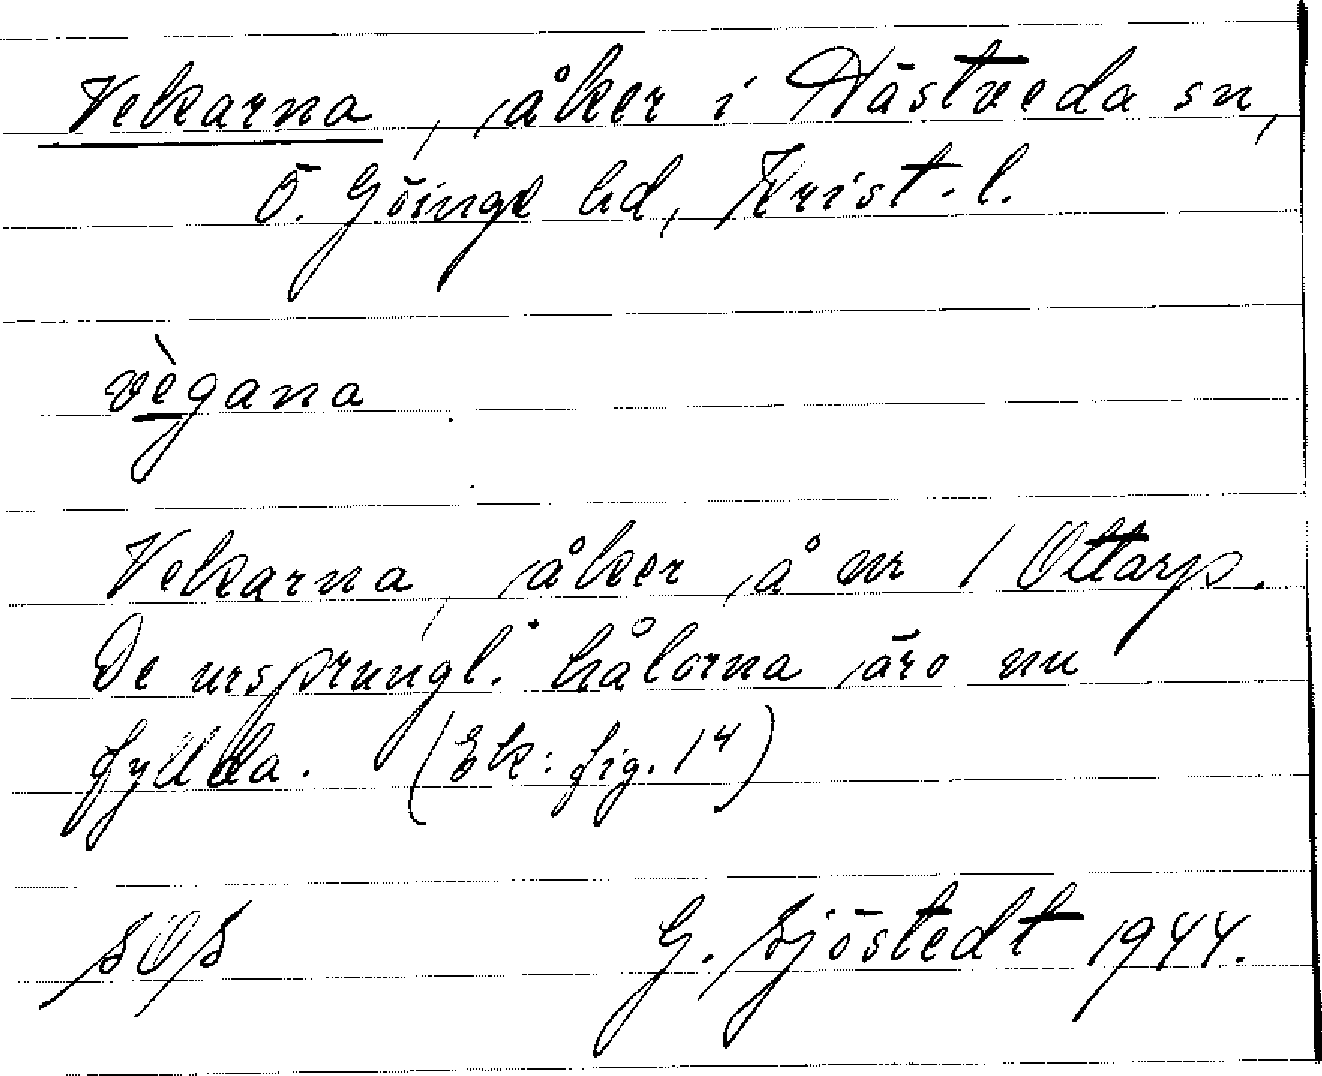 Vekarna, åker i Hästveda sn,
Ö. Göinge hd, Krist. l.
vègana
Vekarna, åker å nr 1 Ottarp.
De ursprungl. hålorna äro nu
fyllda. (Ek: fig. 14)
SOS G. Sjöstedt 1944.